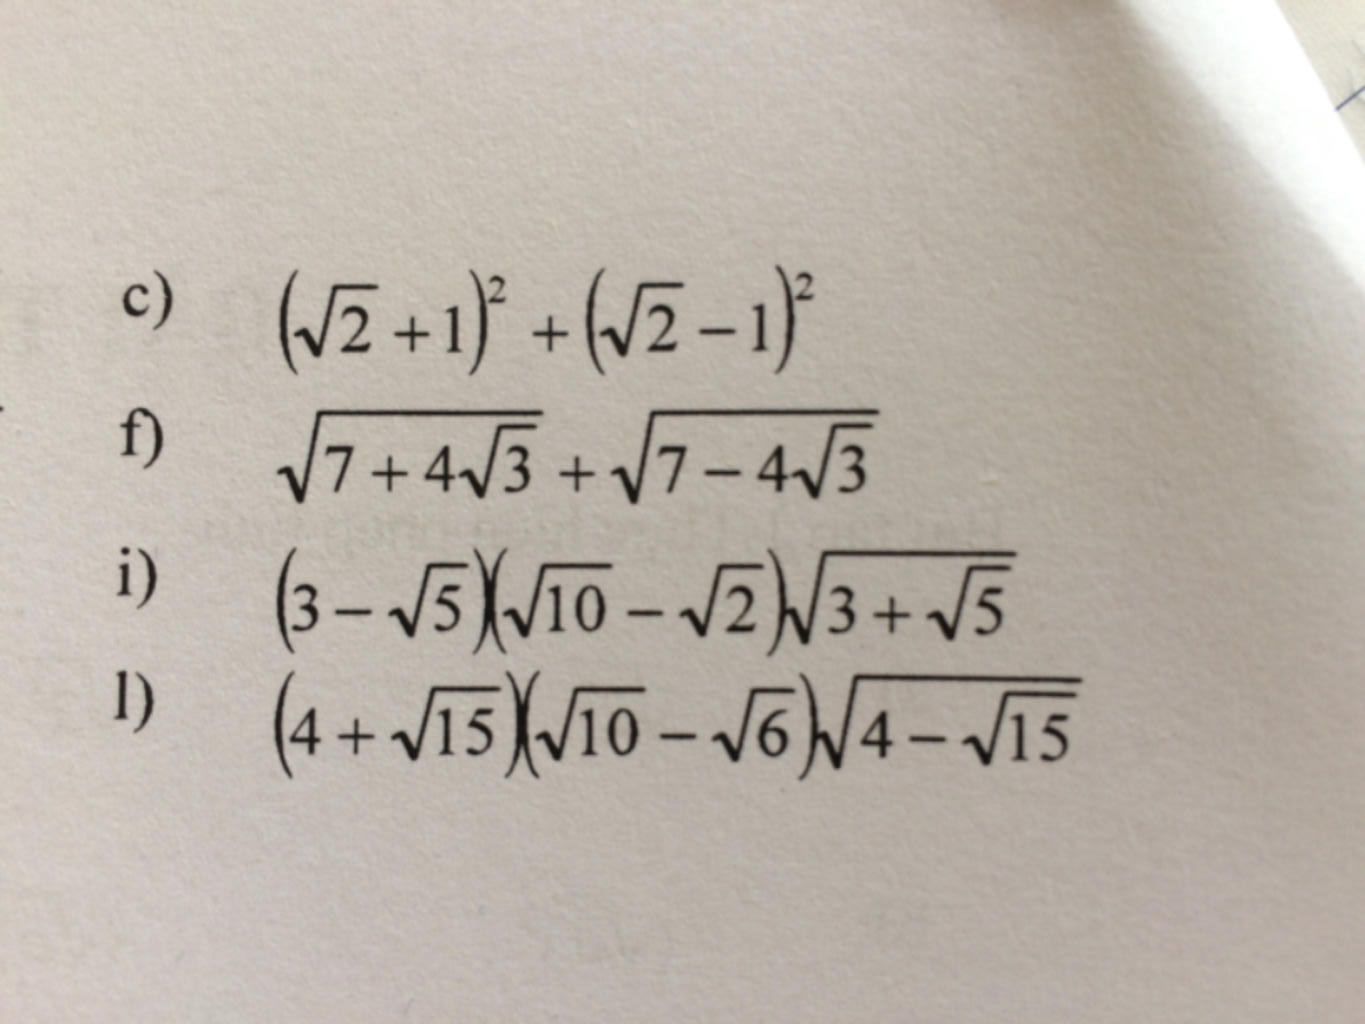 c) (√2 + 1)² + (√2 − 1)²
f) √(7 + 4√3) + √(7 − 4√3)
i) (3 − √5)(√10 − √2)√(3 + √5)
l) (4 + √15)(√10 − √6)√(4 − √15)